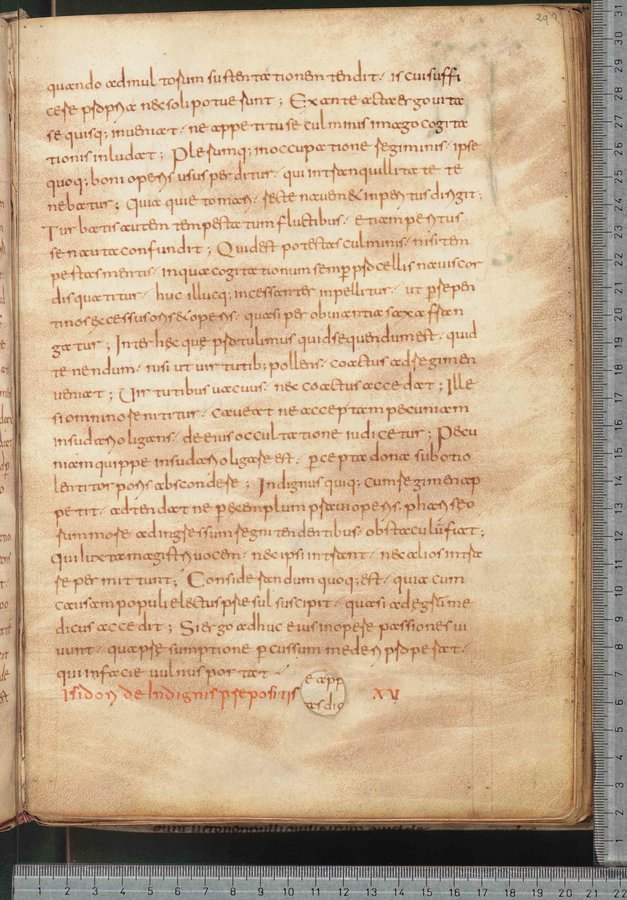 290
quando ad multorum sustentationem tendit. is cui suffi
cere ꝑ prona nec soli potuerunt; Ex ante acta ergo vita
se quisq; inveniat. ne appetitu se culminis imago cogita
tionis inludat; Plerumq; in occupatione regiminis. ipse
quoq; boni operis usus perditur. qui in tranquillitate te
nebatur; Quia quieto mari. recte navem & inperitus dirigit;
Turbatis autem tempestatum fluctibus. etiam peritus
se nauta confundit; Quid est potestas culminis. nisi tem
pestas mentis. in qua cogitationum semper procellis navis cor
dis quatitur. huc illucq; incessanter inpellitur. ut per repen
tinos excessus oris & operis. quasi per obviantia saxa fran
gatur; Inter hec que protulimus quid sequendum est. quid
tenendum. nisi ut virtutib; pollens. coactus ad regimen
veniat; Virtutibus vacuus. nec coactus accedat; Ille
si omnino renititur. caveat ne acceptam pecuniam
in sudario ligans. de eius occultatione iudicetur; Pecu
niam quippe in sudario ligare est. percepta dona sub otio
lenti torporis abscondere; Indignus quiq; cum regimen ap
petit. adtendat ne per exemplum pravi operis. phariseo
rum more ad ingressum regni tendentibus. obstaculum fiat;
Qui iuxta magistri vocem. nec ipsi intrant. nec alios intra
re permittunt; Considerandum quoq; est. quia cum
causam populi electus presul suscipit. quasi ad egrum me
dicus accedit; Si ergo adhuc eius in opere passiones vi
vunt. qua presumptione percussum mederi properat.
qui in facie vulnus portat.
Isidori de Indignis prepositis XV